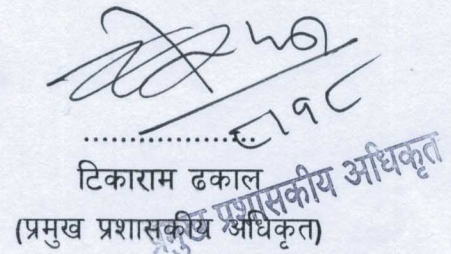 ८।१८
....................
टिकाराम ढकाल
(प्रमुख प्रशासकीय अधिकृत)
प्रमुख प्रशासकीय अधिकृत